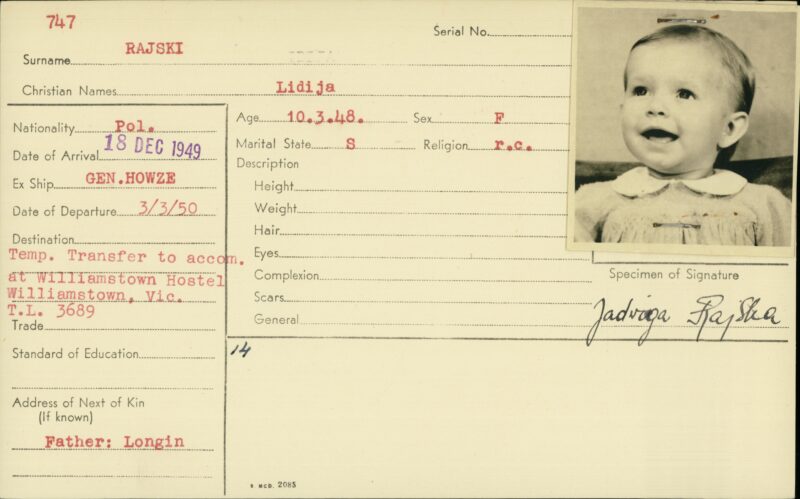 747
Serial No.
Surname RAJSKI
Christian Names Lidija
Nationality Pol.
Date of Arrival 18 DEC 1949
Ex Ship GEN.HOWZE
Date of Departure 3/3/50
Destination
Temp. Transfer to accom.
at Williamstown Hostel
Williamstown, Vic.
T.L. 3689
Trade
Standard of Education
Address of Next of Kin
(If known)
Father: Longin
Age 10.3.48. Sex F
Marital State S Religion r.c.
Description
Height
Weight
Hair
Eyes
Complexion
Scars
General
14
Specimen of Signature
Jadwiga Rajska
McD. 2085